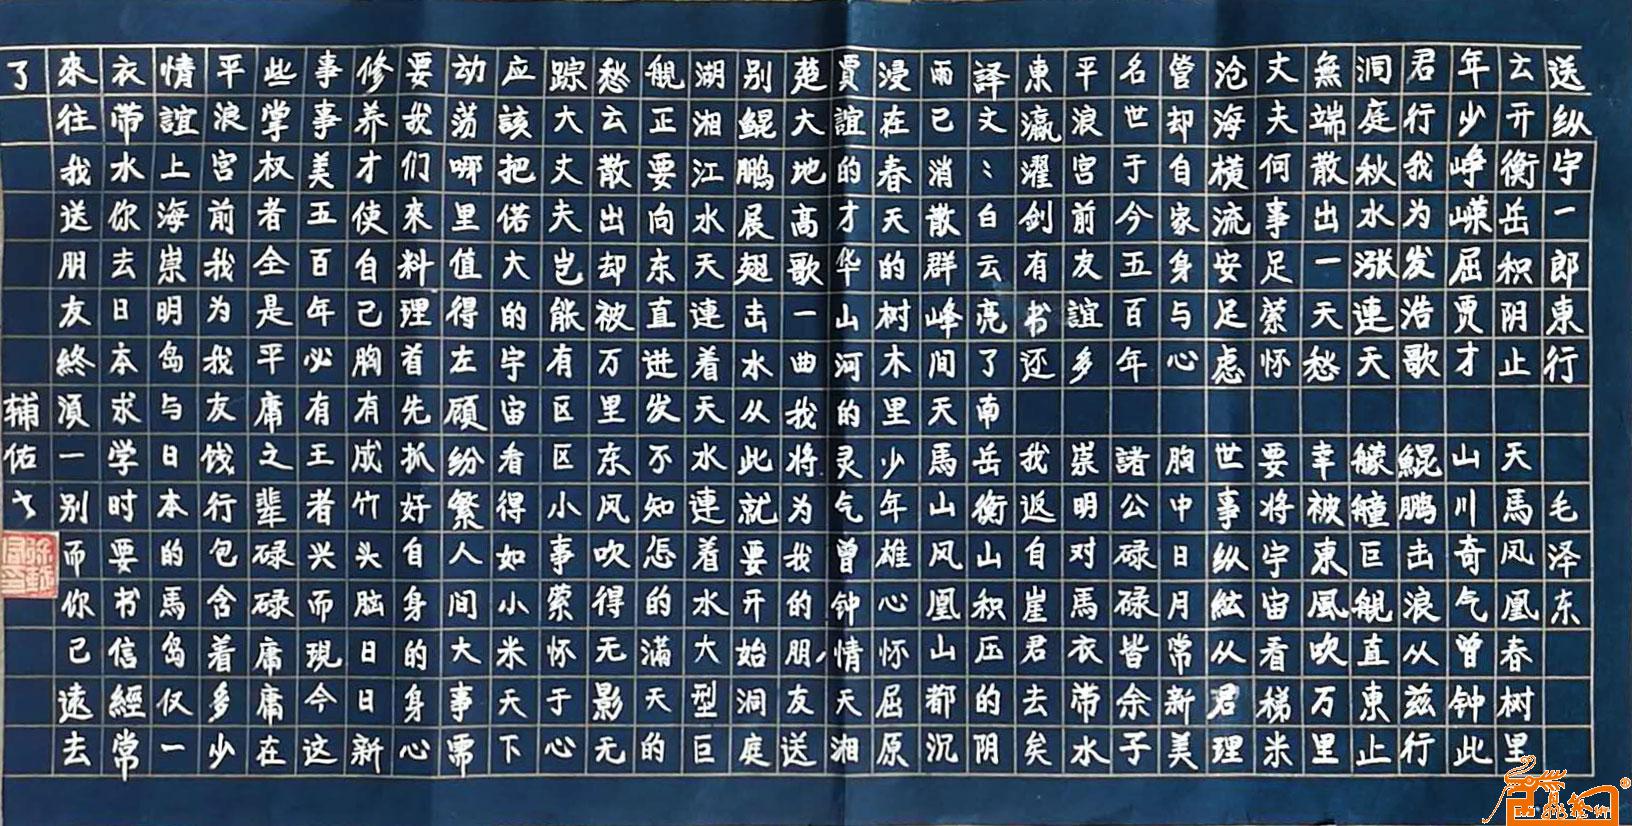 送纵宇一郎東行 毛泽东
云开衡岳积阴止天馬凤凰春树里
年少峥嵘屈贾才山川奇气曾钟此
君行我为发浩歌鲲鹏击浪从兹行
洞庭秋水漲連天艨艟巨舰直東止
無端散出一天愁幸被東風吹万里
丈夫何事足萦怀要将宇宙看稊米
沧海横流安足虑世事纵紘从君理
管却自家身与心胸中日月常新美
名世于今五百年諸公碌碌皆余子
平浪宫前友誼多崇明对馬衣带水
東瀛濯剑有书还我返自崖君去矣
譯文:白云亮了南岳衡山积压的阴
雨已消散群峰间天馬山风凰山都沉
浸在春天的树木里少年雄心怀屈原
賈誼的才华山河的灵气曾钟情天湘
楚大地高歌一曲我将为我的朋友送
别鲲鹏展翅击水从此就要开始洞庭
湖湘江水天連着天水連着水大型巨
舰正要向东直进发不知怎的滿天的
愁云散出却被万里东风吹得无影无
踪大丈夫岂能有区区小事萦怀于心
应該把偌大的宇宙看得如小米天下
动荡哪里值得左顾纷繁人间大事需
要我们來料理首先抓好自身的身心
修养才使自己胸有成竹头脑日日新
事事美五百年必有王者兴而现今这
些掌权者全是平庸之輩碌碌庸庸在
平浪宫前我为我友饯行包含着多少
情誼上海崇明岛与日本的馬岛仅一
衣带水你去日本求学时要书信經常
來往我送朋友終須一别而你已遠去
了 辅佑